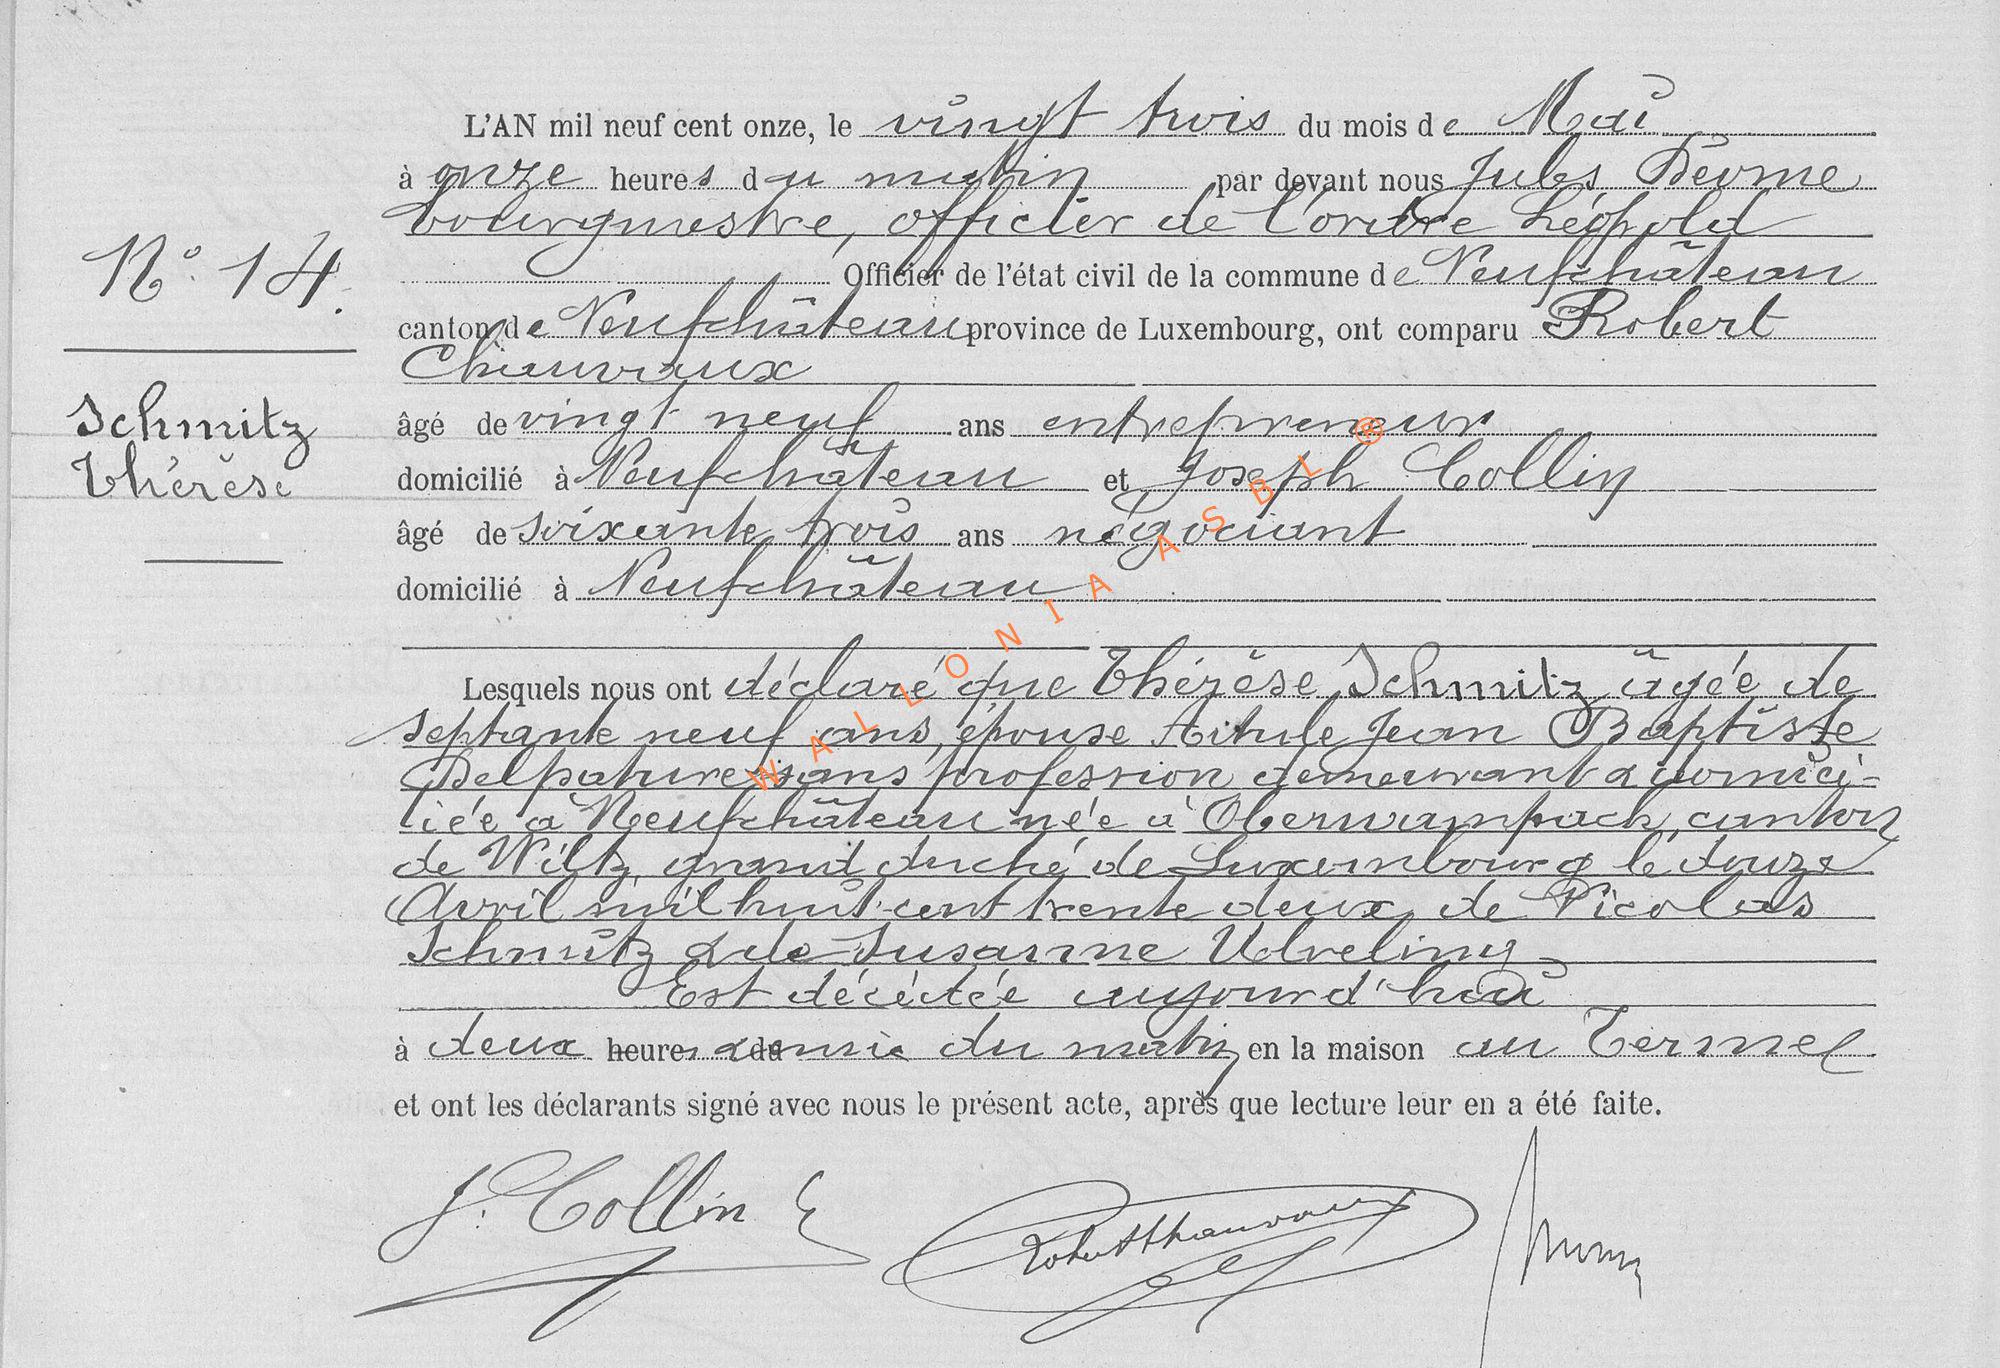 L'AN mil neuf cent onze, le vingt trois du mois de Mai
à onze heures du matin par devant nous Jules Déome
bourgmestre, officier de l'ordre Léopold
Officier de l'état civil de la commune de Neufchâteau
N° 14.
canton de Neufchâteau province de Luxembourg, ont comparu Robert
Chauvaux
Schmitz
Thérèse
âgé de vingt neuf ans entrepreneur
domicilié à Neufchâteau et Joseph Collin
âgé de soixante trois ans négociant
domicilié à Neufchâteau
WALLONIA ASBL ®
Lesquels nous ont déclaré que Thérèse Schmitz âgée de
septante neuf ans, épouse Jean Baptiste
Delpature sans profession demeurant & domici-
liée à Neufchâteau née à Oberwampach, canton
de Wiltz, grand duché de Luxembourg le douze
Avril mil huit-cent trente deux, de Nicolas
Schmitz & de Susanne
Est décédée aujourd'hui
à deux heures & demie du matin en la maison au Termel
et ont les déclarants signé avec nous le présent acte, après que lecture leur en a été faite.
J. Collin Robert Chauvaux